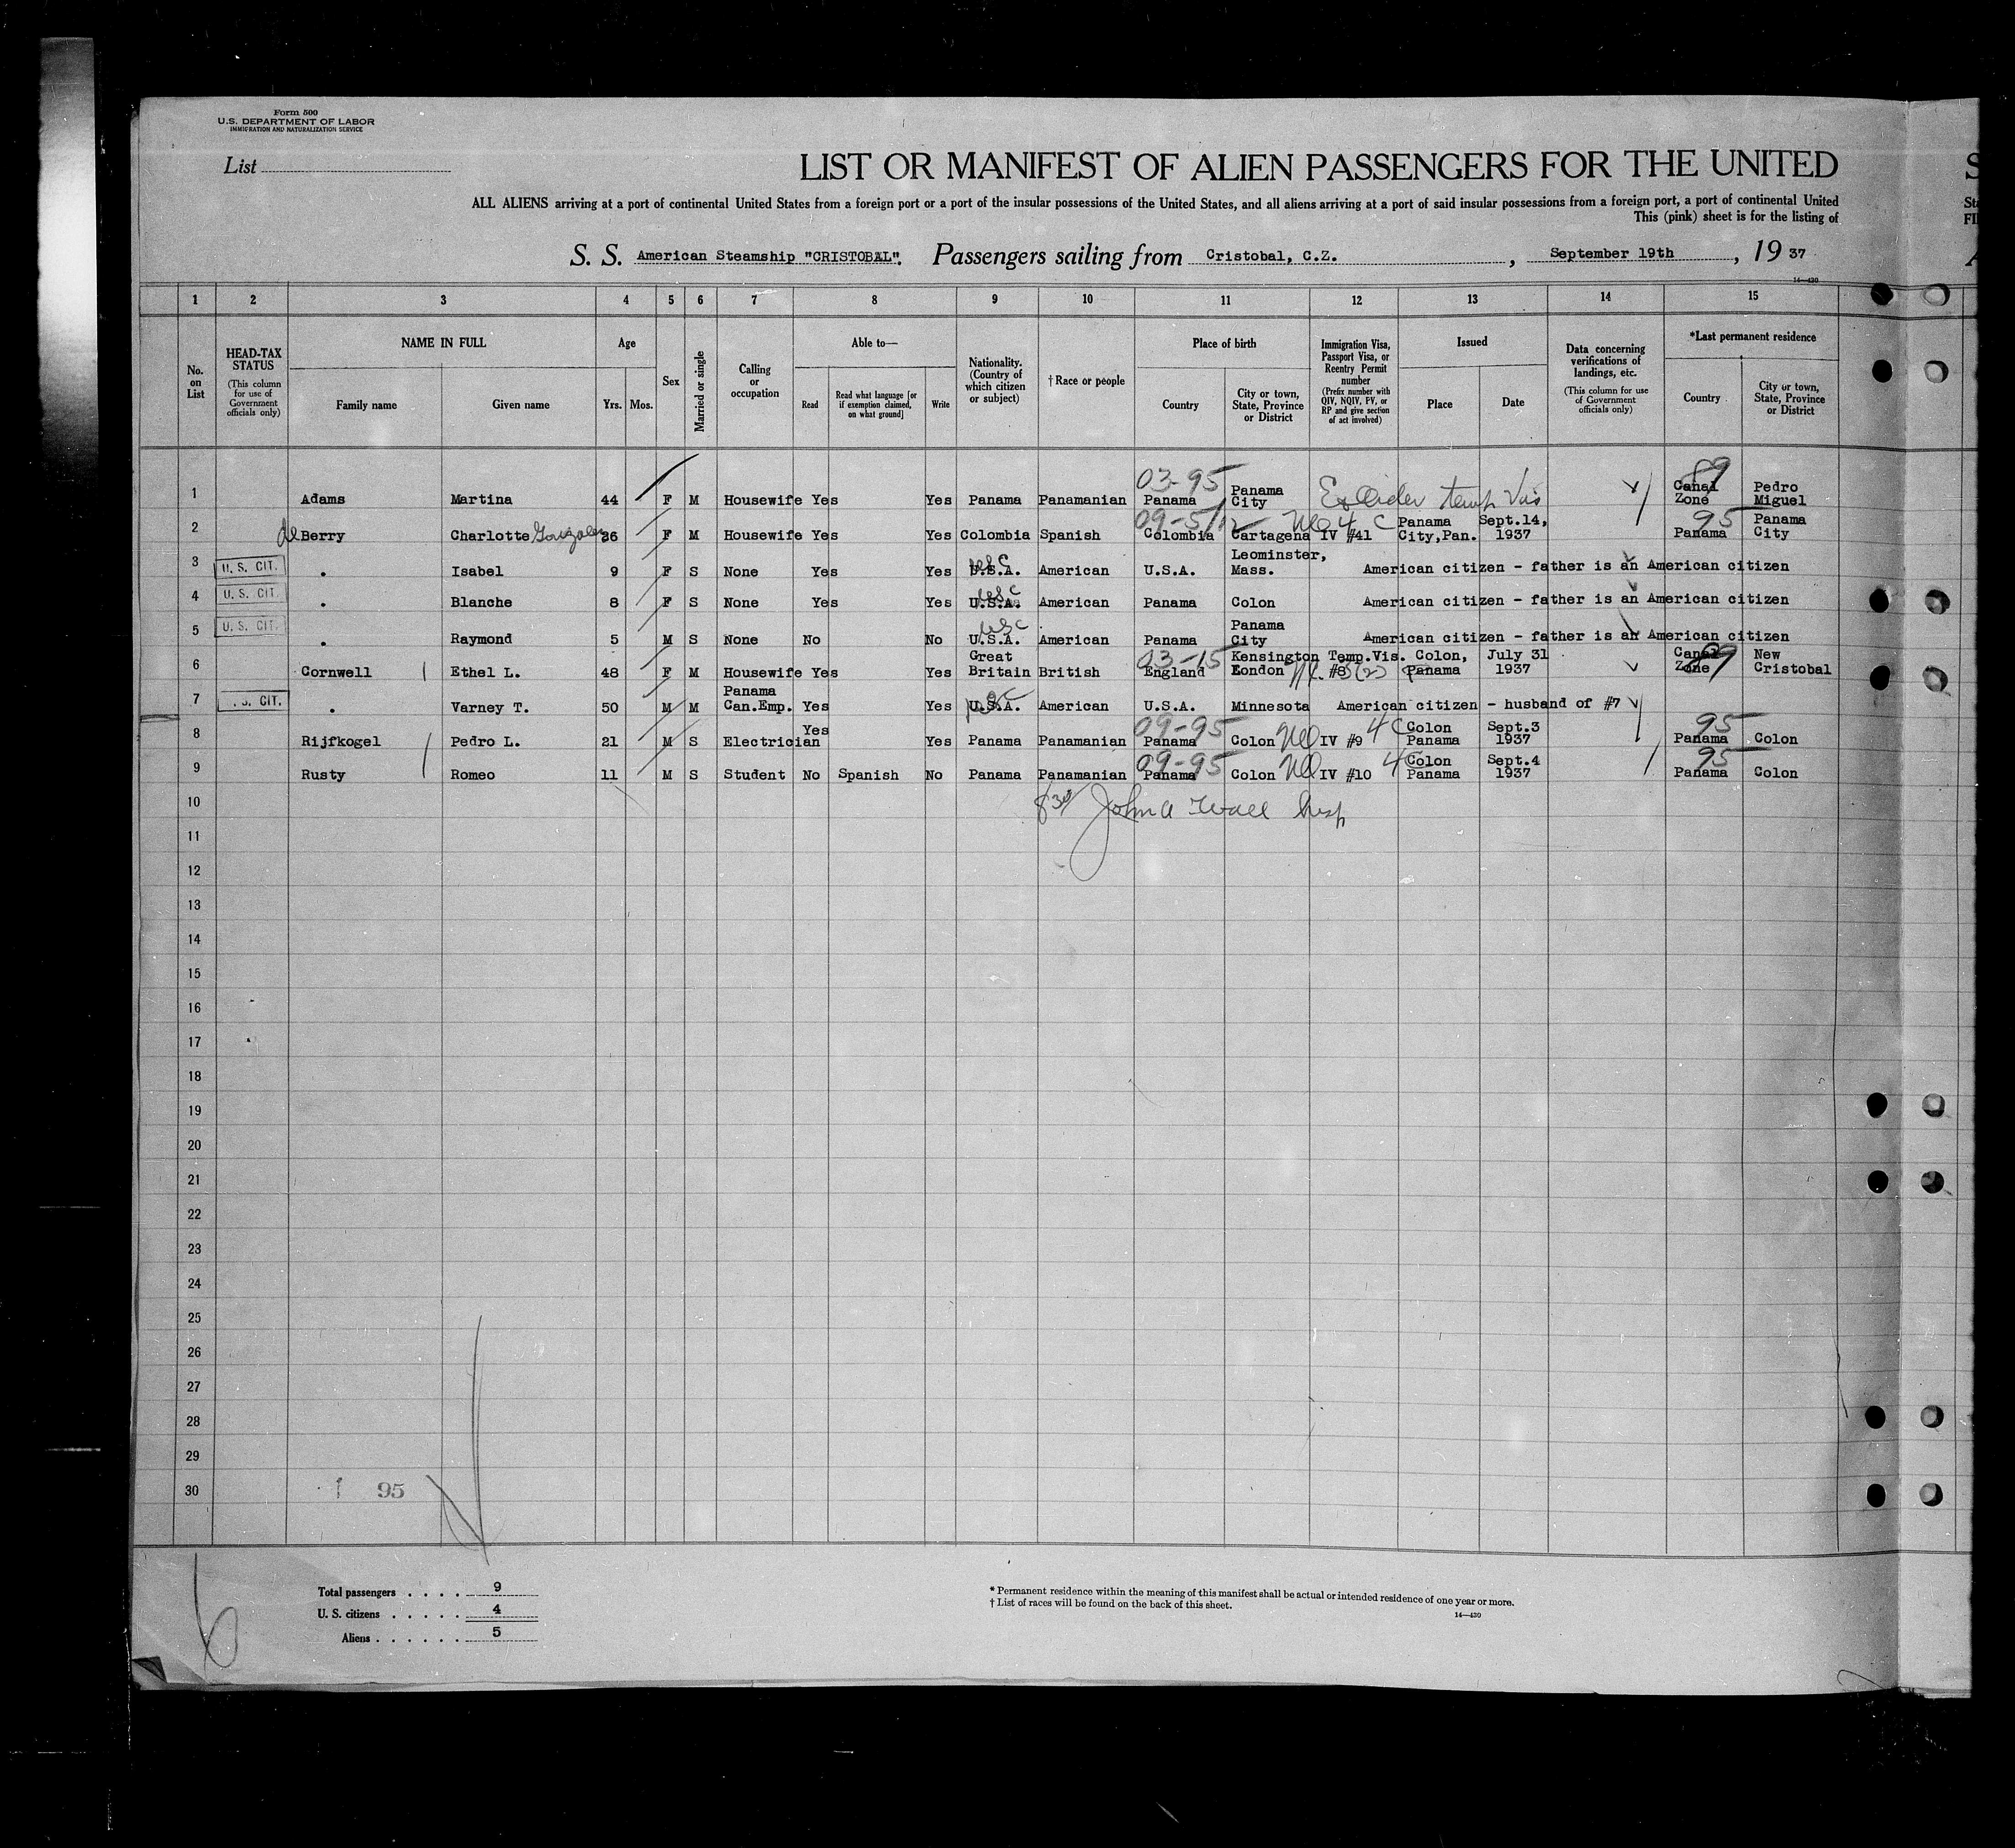 Form 500
U.S. DEPARTMENT OF LABOR
IMMIGRATION AND NATURALIZATION SERVICE
List
LIST OR MANIFEST OF ALIEN PASSENGERS FOR THE UNITED
ALL ALIENS arriving at a port of continental United States from a foreign port or a port of the insular possessions of the United States, and all aliens arriving at a port of said insular possessions from a foreign port, a port of continental United
This (pink) sheet is for the listing of
S. S. American Steamship "CRISTOBAL". Passengers sailing from Cristobal, C.Z. , September 19th , 19 37
14—430
1 2 3 4 5 6 7 8 9 10 11 12 13 14 15
No. on List
HEAD-TAX STATUS (This column for use of Government officials only)
NAME IN FULL Family name Given name
Age Yrs. Mos.
Sex
Married or single
Calling or occupation
Able to— Read Read what language [or if exemption claimed, on what ground] Write
Nationality. (Country of which citizen or subject)
† Race or people
Place of birth Country City or town, State, Province or District
Immigration Visa, Passport Visa, or Reentry Permit number (Prefix number with QIV, NQIV, PV, or RP and give section of act involved)
Issued Place Date
Data concerning verifications of landings, etc. (This column for use of Government officials only)
*Last permanent residence Country City or town, State, Province or District
1 Adams Martina 44 F M Housewife Yes Yes Panama Panamanian 03-95 Panama Panama City temp Vis 89 Canal Zone Pedro Miguel
2 de Berry Charlotte Gonzalez 26 F M Housewife Yes Yes Colombia Spanish 09-51 Colombia Cartagena IV #41 4 C Panama City,Pan. Sept.14, 1937 95 Panama Panama City
3 U. S. CIT. " Isabel 9 F S None Yes Yes usc U.S.A. American U.S.A. Leominster, Mass. American citizen - father is an American citizen
4 U. S. CIT. " Blanche 8 F S None Yes Yes usc U.S.A. American Panama Colon American citizen - father is an American citizen
5 U. S. CIT. " Raymond 5 M S None No No usc U.S.A. American Panama Panama City American citizen - father is an American citizen
6 Cornwell Ethel L. 48 F M Housewife Yes Yes Great Britain British 03-15 England Kensington London Temp.Vis. #8 3(2) Colon, Panama July 31 1937 89 Canal Zone New Cristobal
7 . S. CIT. " Varney T. 50 M M Panama Can.Emp. Yes Yes usc U.S.A. American U.S.A. Minnesota American citizen - husband of #7
8 Rijfkogel Pedro L. 21 M S Electrician Yes Yes Panama Panamanian 09-95 Panama Colon IV #9 4 C Colon Panama Sept.3 1937 95 Panama Colon
9 Rusty Romeo 11 M S Student No Spanish No Panama Panamanian 09-95 Panama Colon IV #10 4 Colon Panama Sept.4 1937 95 Panama Colon
10 John A Wall Insp
11
12
13
14
15
16
17
18
19
20
21
22
23
24
25
26
27
28
29
30 95
6
Total passengers . . . . 9
U. S. citizens . . . . . 4
Aliens . . . . . . 5
* Permanent residence within the meaning of this manifest shall be actual or intended residence of one year or more.
† List of races will be found on the back of this sheet.
14—430